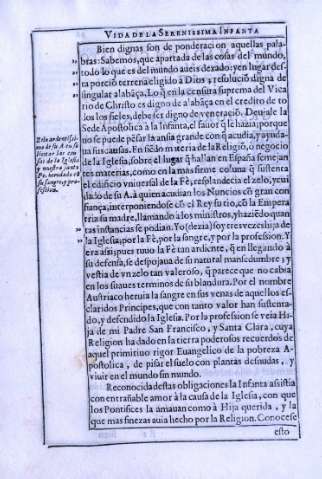 VIDA DE LA SERENISSIMA INFANTA
Bien dignas son de ponderacion aquellas pala-
bras: Sabemos, que apartada de las cosas del mundo,
todo lo que es del mundo aueis dexado: y en lugar des-
ta porciō terrena eligido à Dios; resoluciō digna de
singular alabāça. Lo q̄ en la censura suprema del Vica
rio de Christo es digno de alabāça en el credito de to
dos los fieles, debe ser digno de veneraciō. Deuiale la
Sede Apostolica à la Infanta, el fauor q̄ le hazia; porque
no se puede pēsar la ansia grande con q̄ acudia, y ayuda
ua sus causas. En siēdo materia de Religiō, o negocio
de la Iglesia, sobre el lugar q̄ hallan en España semejan
tes materias, como en la mas firme coluna q̄ sustenta
el edificio vniuersal de la Fè, resplandecia el zelo, y cui
dado de su A. à quien acudian los Nuncios cō gran con
fiança, interponiendose cō el Rey su tio, cō la Empera
tria su madre, llamando à los ministros, y haziēdo quan
tas instancias se podian. Yo (dezia) soy tres vezes hija de
la Iglesia; por la Fè, por la sangre, y por la profession. Y
era assi; pues tuuo la Fè tan ardiente, q̄ en llegando à
su defensa, se despojaua de su natural mansedumbre; y
vestia de vn zelo tan valeroso, q̄ parece que no cabia
en los suaues terminos de su blandura. Por el nombre
Austriaco heruia la sangre en sus venas de aquellos es-
claridos Principes, que con tanto valor han sustenta-
do, y defendido la Iglesia. Por la profession se veia Hi-
ja de mi Padre San Francisco, y Santa Clara, cuya
Religion ha dado en la tierra poderosos recuerdos de
aquel primitiuo rigor Euangelico de la pobreza A-
postolica, de pisar el suelo con plantas desnudas, y
viuir en el mundo sin mundo.
Reconocida destas obligaciones la Infanta assistia
con entrañable amor à la causa de la Iglesia, con que
los Pontifices la amauan como à Hija querida, y la
que mas finezas auia hecho por la Religion. Conocese
esto